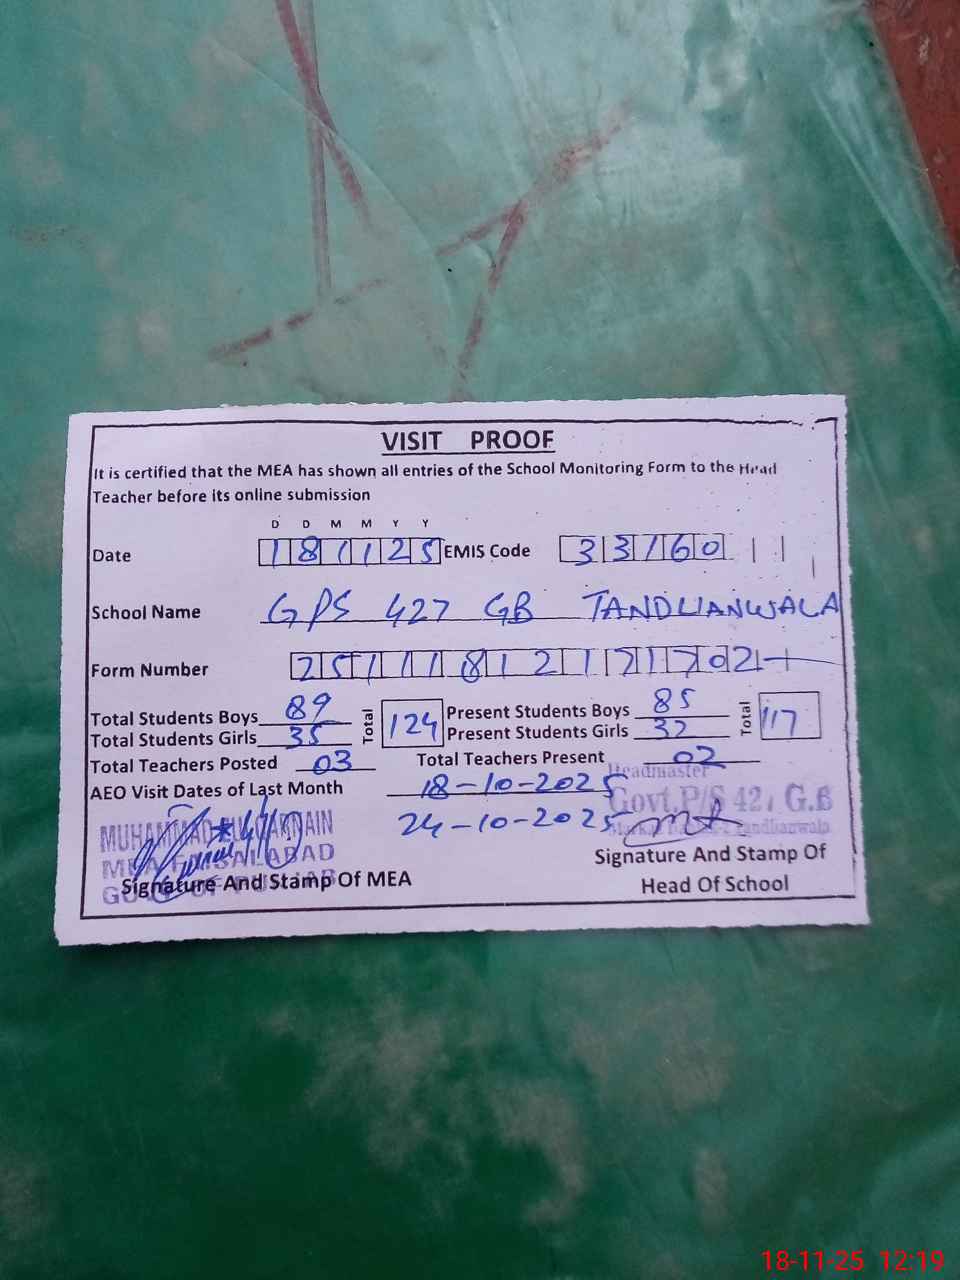 VISIT PROOF
It is certified that the MEA has shown all entries of the School Monitoring Form to the Head
Teacher before its online submission
D D M M Y Y
Date 181125 EMIS Code 33160
School Name GPS 427 GB TANDLIANWALA
Form Number
Total Students Boys 89 Total 124 Present Students Boys 85 Total 117
Total Students Girls 35 Present Students Girls 32
Total Teachers Posted 03 Total Teachers Present 02
AEO Visit Dates of Last Month 18-10-2025
24-10-2025
Headmaster
Govt.P/S 427 G.B
Tandlianwala
MUHAMMAD
MEA FAISALABAD
Signature And Stamp Of MEA
Signature And Stamp Of
Head Of School
18-11-25 12:19